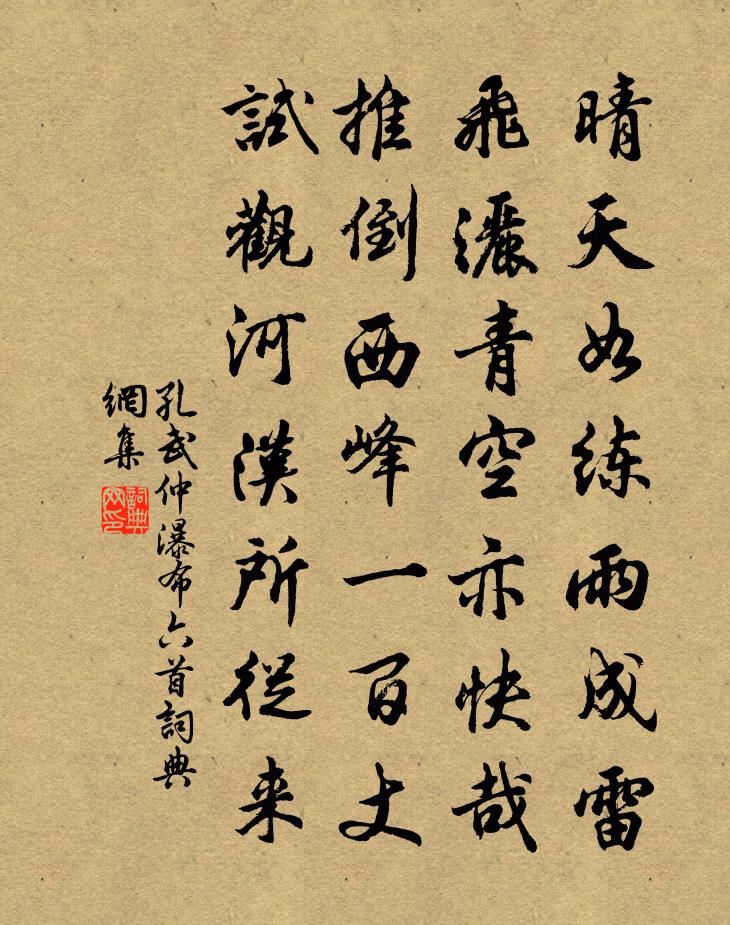 晴天如练雨成雷
飛灑青空亦快哉
推倒西峰一百丈
試觀河漢所從来
孔武仲瀑布六首詞典
網集
詞典
网印